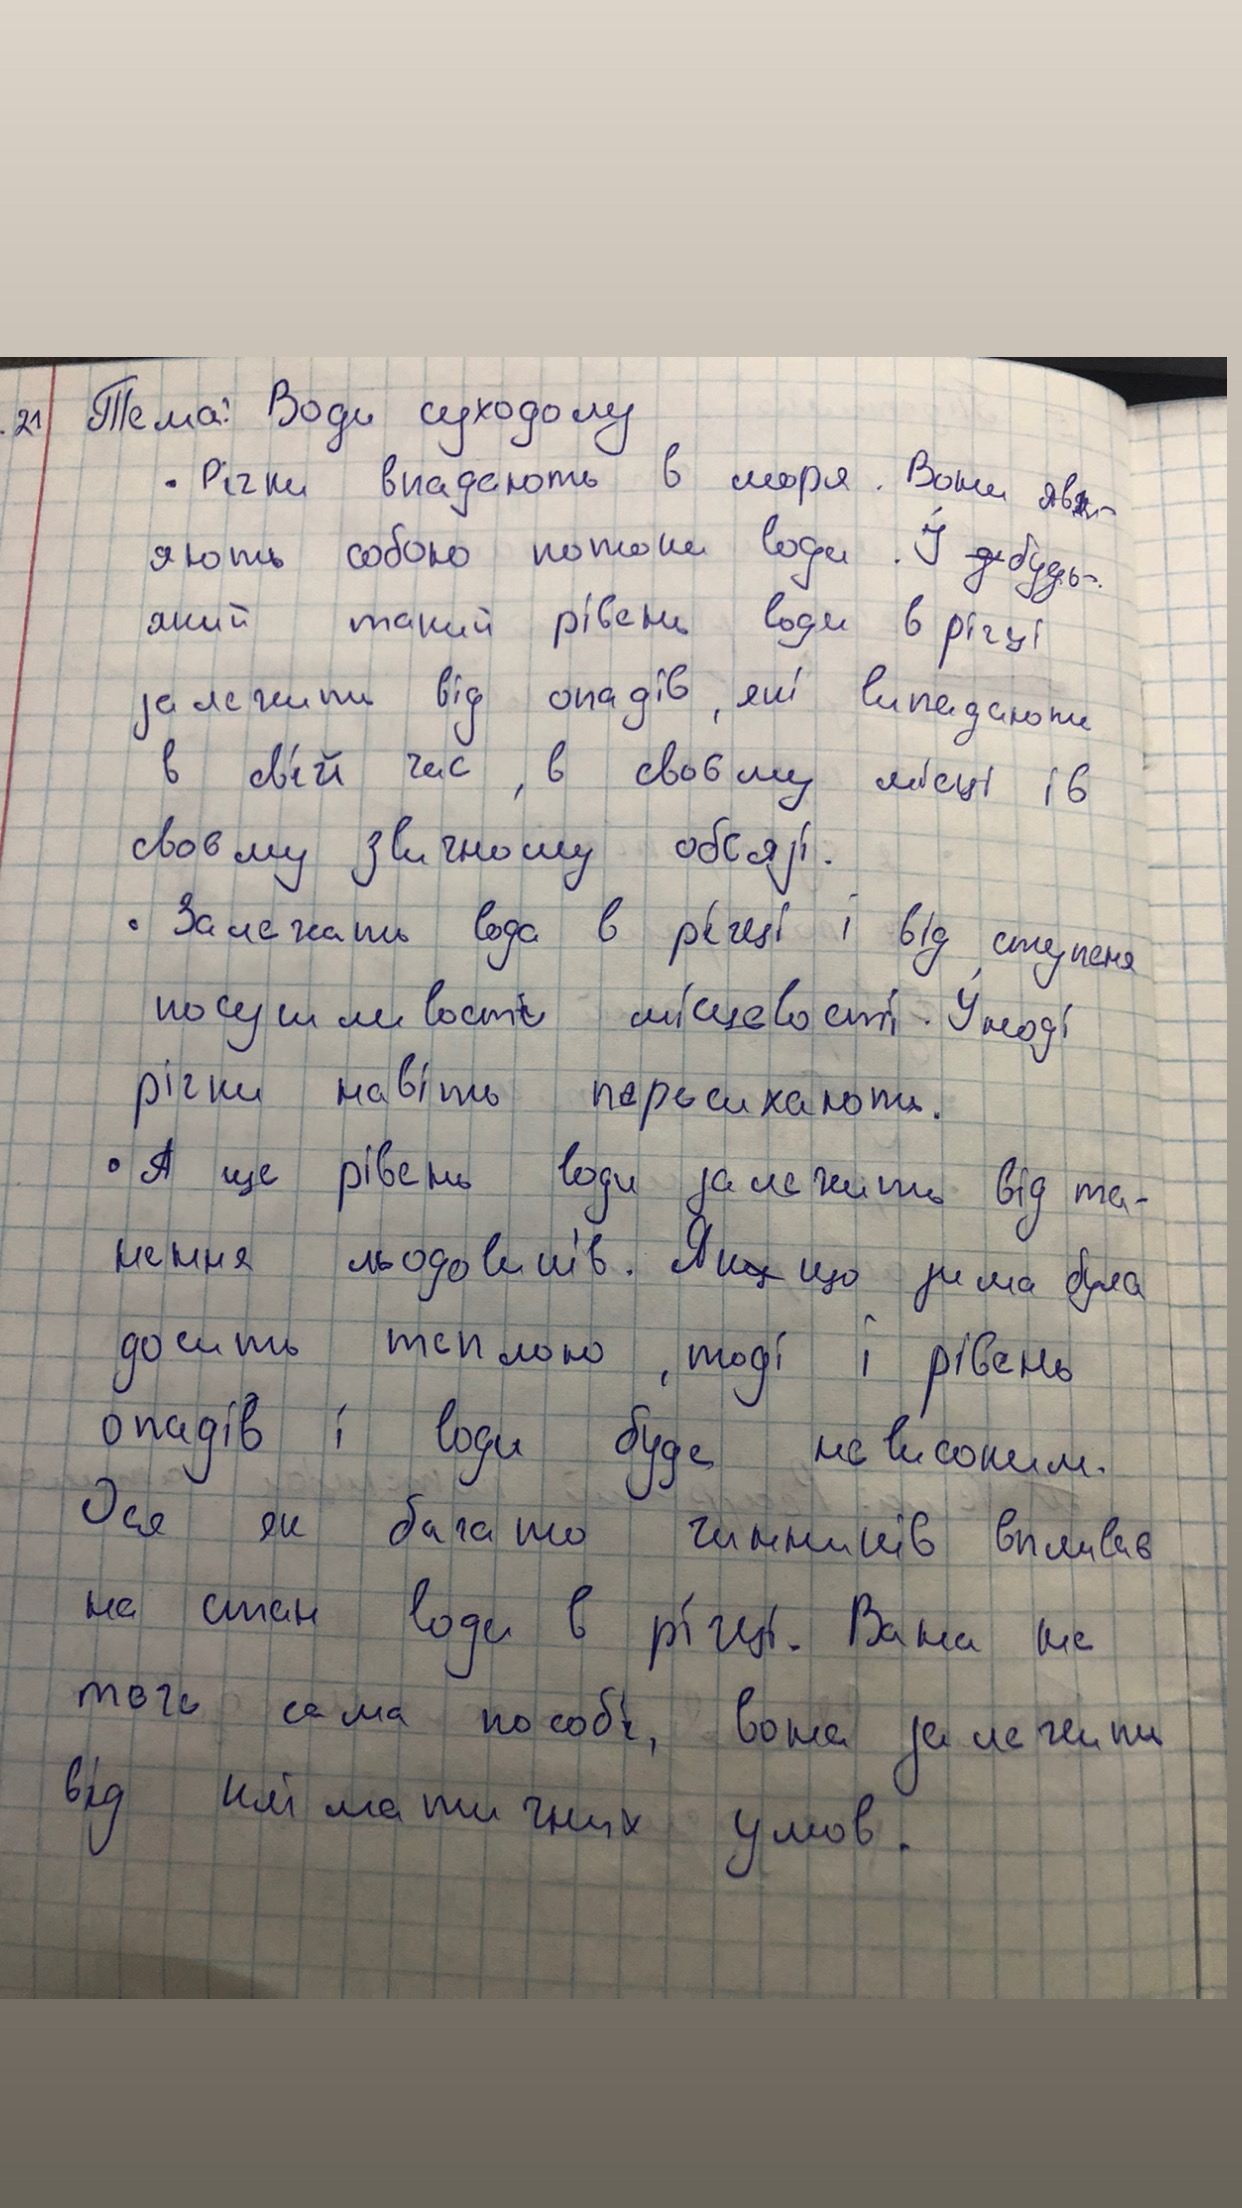 .21 Тема: Води суходолу
• Річки впадають в моря. Вони явл-
яють собою потоки води. І будь-
який такий рівень води в річці
залежить від опадів, які випадають
в свій час, в своєму місці і в
своєму звичному обсязі.
• Залежать вода в річці і від ступеня
посушливості місцевості. Іноді
річки навіть пересихають.
• А ще рівень води залежить від та-
нення льодовиків. Якщо зима була
досить теплою, тоді і рівень
опадів і води буде невисоким.
Ося як багато чинників впливає
на стан води в річці. Вона не
тече сама по собі, вона залежить
від кліматичних умов.